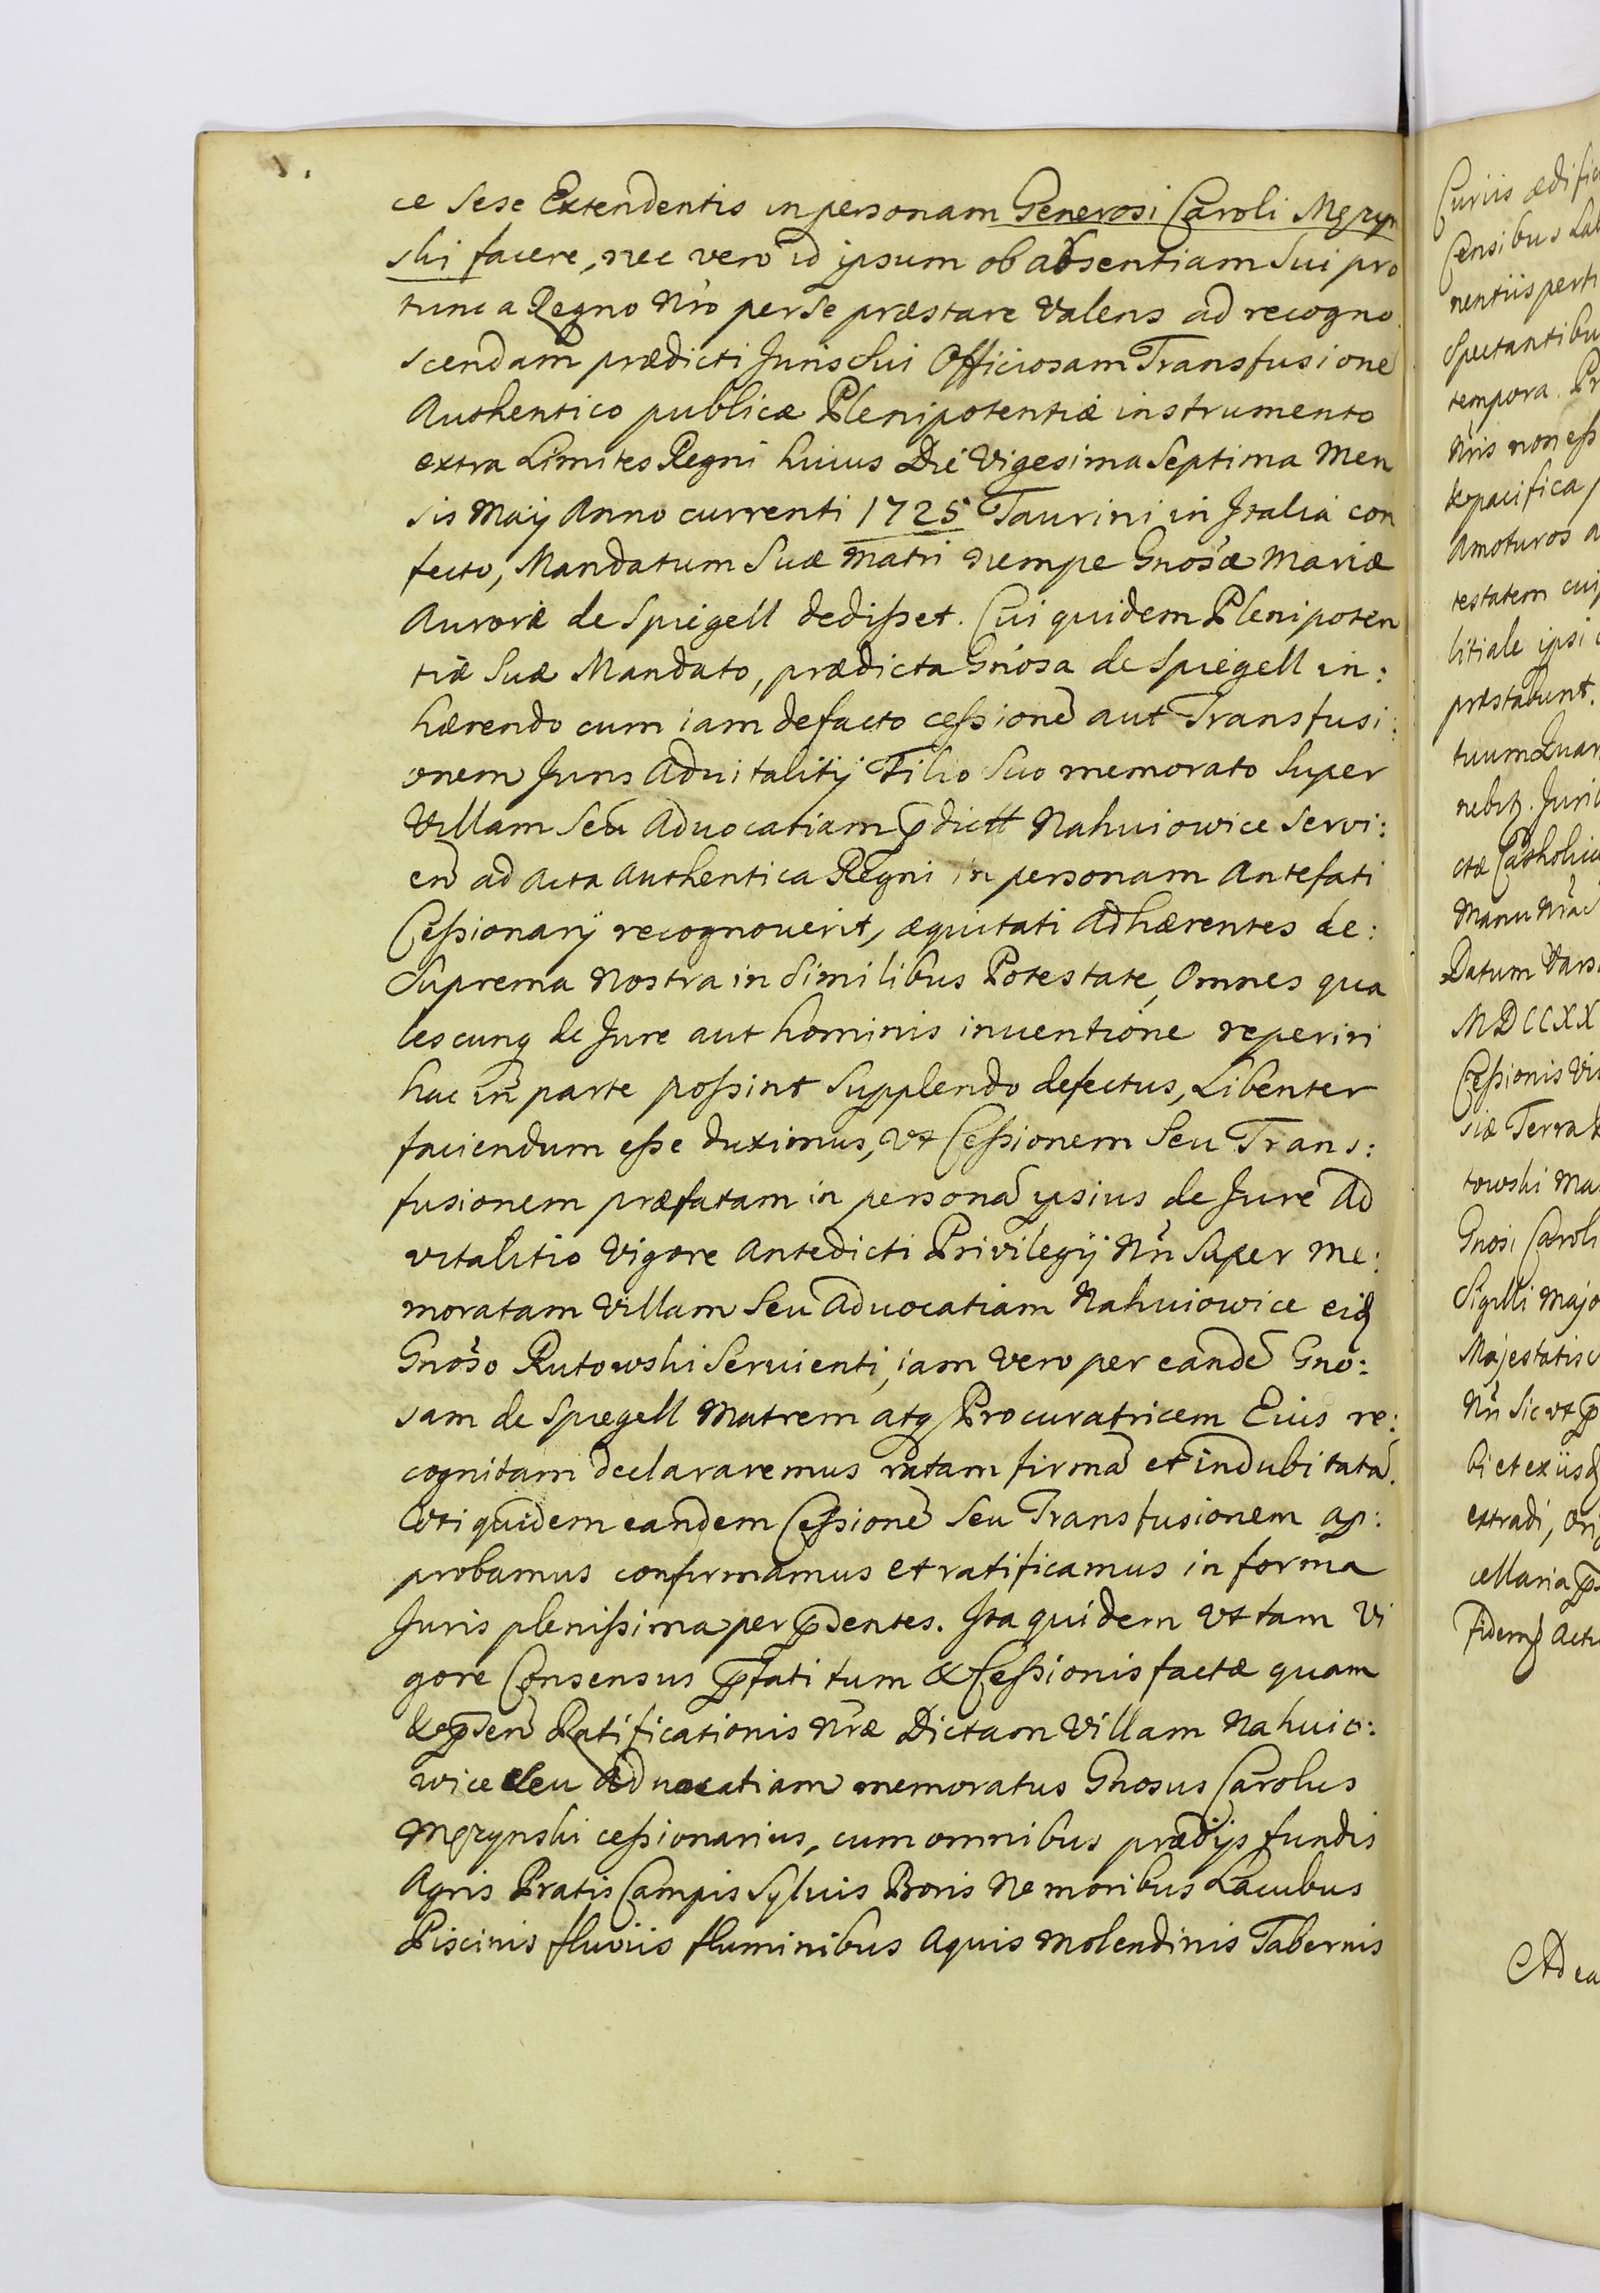 ce sese Extendentis in personam Generosi Caroli Męzyn
ski facere, nec vero id ipsum ob absentiam sui pro
tunc a Regno Nro per se præstare Valens ad recogno
scendam prædicti Juris sui Officiosam Transfusionẽ
Authentico publicæ Plenipotentiæ instrumento
extra Limites Regni huius Die Vigesima Septima Men
sis Maÿ Anno currenti 1725 Taurini in Italia con
fecto, Mandatum suæ Matri nempe Gnosæ Mariæ
Auroræ de Spiegell dedisset. Cui quidem Plenipoten
tiæ suæ Mandato, prædicta Gnosa de Spiegell in:
hærendo cum iam de facto cessionẽ aut Transfusi:
onem Juris Aduitalitÿ Filio suo memorato super
Villam seu Aduocatiam p̃dictt Nahuiowice servi:
eñ ad Acta Authentica Regni in personam Antefati
Cessionarÿ recognouerit, æquitati Adhærentes de:
suprema Nostra in similibus Potestate, Omnes qua
lescunq de Jure aut hominis inuentione reperiri
hac in parte possint supplendo defectus, Libenter
faciendum esse duximus, Vt Cessionem seu Trans:
fusionem præfatam in personã ipsius de Jure Ad
vitalitio Vigore Antedicti Privilegÿ Nri super me:
moratam Villam seu Aduocatiam Nahuiowice eid
Gnoso Rutowski seruienti, iam Vero per eandẽ Gno:
sam de Spiegell Matrem atq Procuratricem Eius re:
cognitam declararemus ratam firmã et indubitatã.
Uti quidem eandem Cessionẽ seu Transfusionem ap:
probamus confirmamus et ratificamus in forma
Juris plenissima per p̃sentes. Ita quidem Vt tam Vi
gore Consensus p̃fati tum & Cessionis factæ quam
& p̃señ Ratificationis Nræ Dictam Villam Nahuio:
wice seu Aduocatiam memoratus Gnosus Carolus
Męzynski cessionarius, cum omnibus prædÿs fundis
Agris Pratis Campis Syluis Boris Nemoribus Lacubus
Piscinis fluviis fluminibus Aquis Molendinis Tabernis
Curiis ædific
Censibus Lab
nentiis perti
Spectantibu
tempora. Pr
Nris non ess
& pacifica p
Amoturos a
testatem cui
litiale ipsi
præstabunt.
nebit. Juri
ctæ Catholic
Manu Nra
Datum Vars
MDCCXX
Cessionis Vi
siæ Terra
towski Ma
Gnosi Caroli
Sigilli Majo
Majestatis
Nri sic vt p̃
bi et ex iisd
extradi, Ori
cellaria p̃
Fidemq Actu
Ad ea